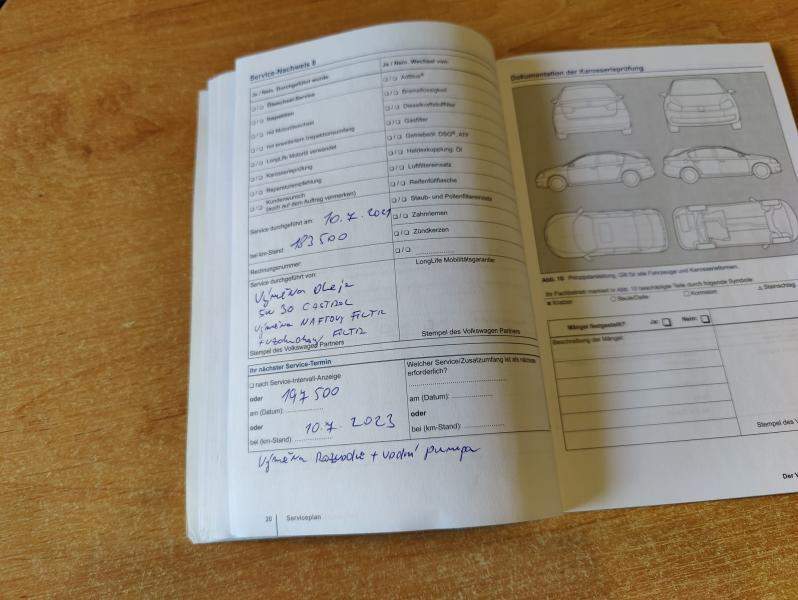 Service-Nachweis 8
Ja / Nein Durchgeführt wurde
❏/❏ Ölwechsel-Service
❏/❏ Inspektion
❏/❏ mit Motorölwechsel
❏/❏ mit erweitertem Inspektionsumfang
❏/❏ LongLife Motoröl verwendet
❏/❏ Karosserieprüfung
❏/❏ Reparaturempfehlung
❏/❏ Kundenwunsch
(auch auf dem Auftrag vermerken)
Service durchgeführt am: 10.7.2021
bei km-Stand: 183500
Rechnungsnummer:
Service durchgeführt von:
Výměna oleje
5W 30 CASTROL
Výměna NAFTOVÝ FILTR
+ vzduchový FILTR
Stempel des Volkswagen Partners
Ja / Nein Wechsel von:
❏/❏ AdBlue®
❏/❏ Bremsflüssigkeit
❏/❏ Dieselkraftstofffilter
❏/❏ Gasfilter
❏/❏ Getriebeöl: DSG®, ATF
❏/❏ Haldexkupplung: Öl
❏/❏ Luftfiltereinsatz
❏/❏ Reifenfüllflasche
❏/❏ Staub- und Pollenfiltereinsatz
❏/❏ Zahnriemen
❏/❏ Zündkerzen
❏/❏ ....................
LongLife Mobilitätsgarantie
Stempel des Volkswagen Partners
Ihr nächster Service-Termin
❏ nach Service-Intervall-Anzeige
oder 197 500
am (Datum): ....................
oder 10.7.2023
bei (km-Stand): ....................
Welcher Service/Zusatzumfang ist als nächstes
erforderlich?
....................
am (Datum): ....................
oder
bei (km-Stand): ....................
Výměna Rozvodů + vodní pumpa
20 Serviceplan
Dokumentation der Karosserieprüfung
Abb. 10 Prinzipdarstellung. Gilt für alle Fahrzeuge und Karosserieformen.
Ihr Fachbetrieb markiert in Abb. 10 beschädigte Teile durch folgende Symbole:
■ Kratzer ○ Beule/Delle □ Korrosion △ Steinschlag
Mängel festgestellt? Ja: ❏ Nein: ❏
Beschreibung der Mängel:
Stempel des V
Der V